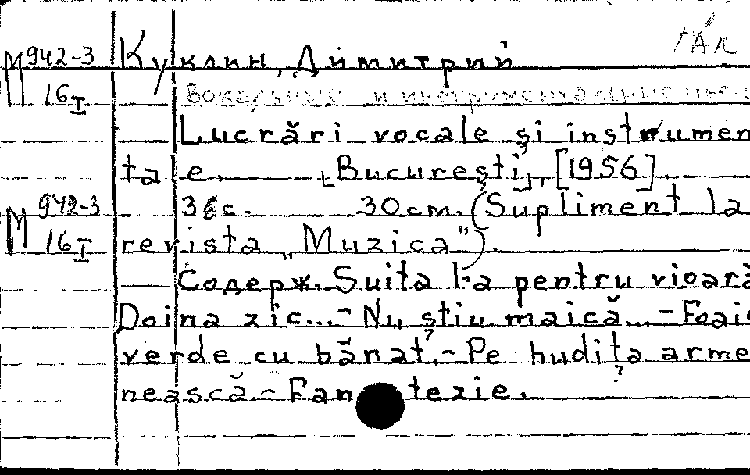 М 942-3 Куклин, Димитрий
16 I Вокальные и инструментальные
Lucrări vocale şi instrumen
tale. [Bucureşti], [1956]
М 942-3 36 с. 30 cm. (Supliment la
16 I revista „Muzica").
Содерж. Suita I-a pentru vioară
Doina zic... - Nu ştiu maică... - Foaie
verde cu bănaţ. - Pe hudiţa arme
nească - Fantezie.